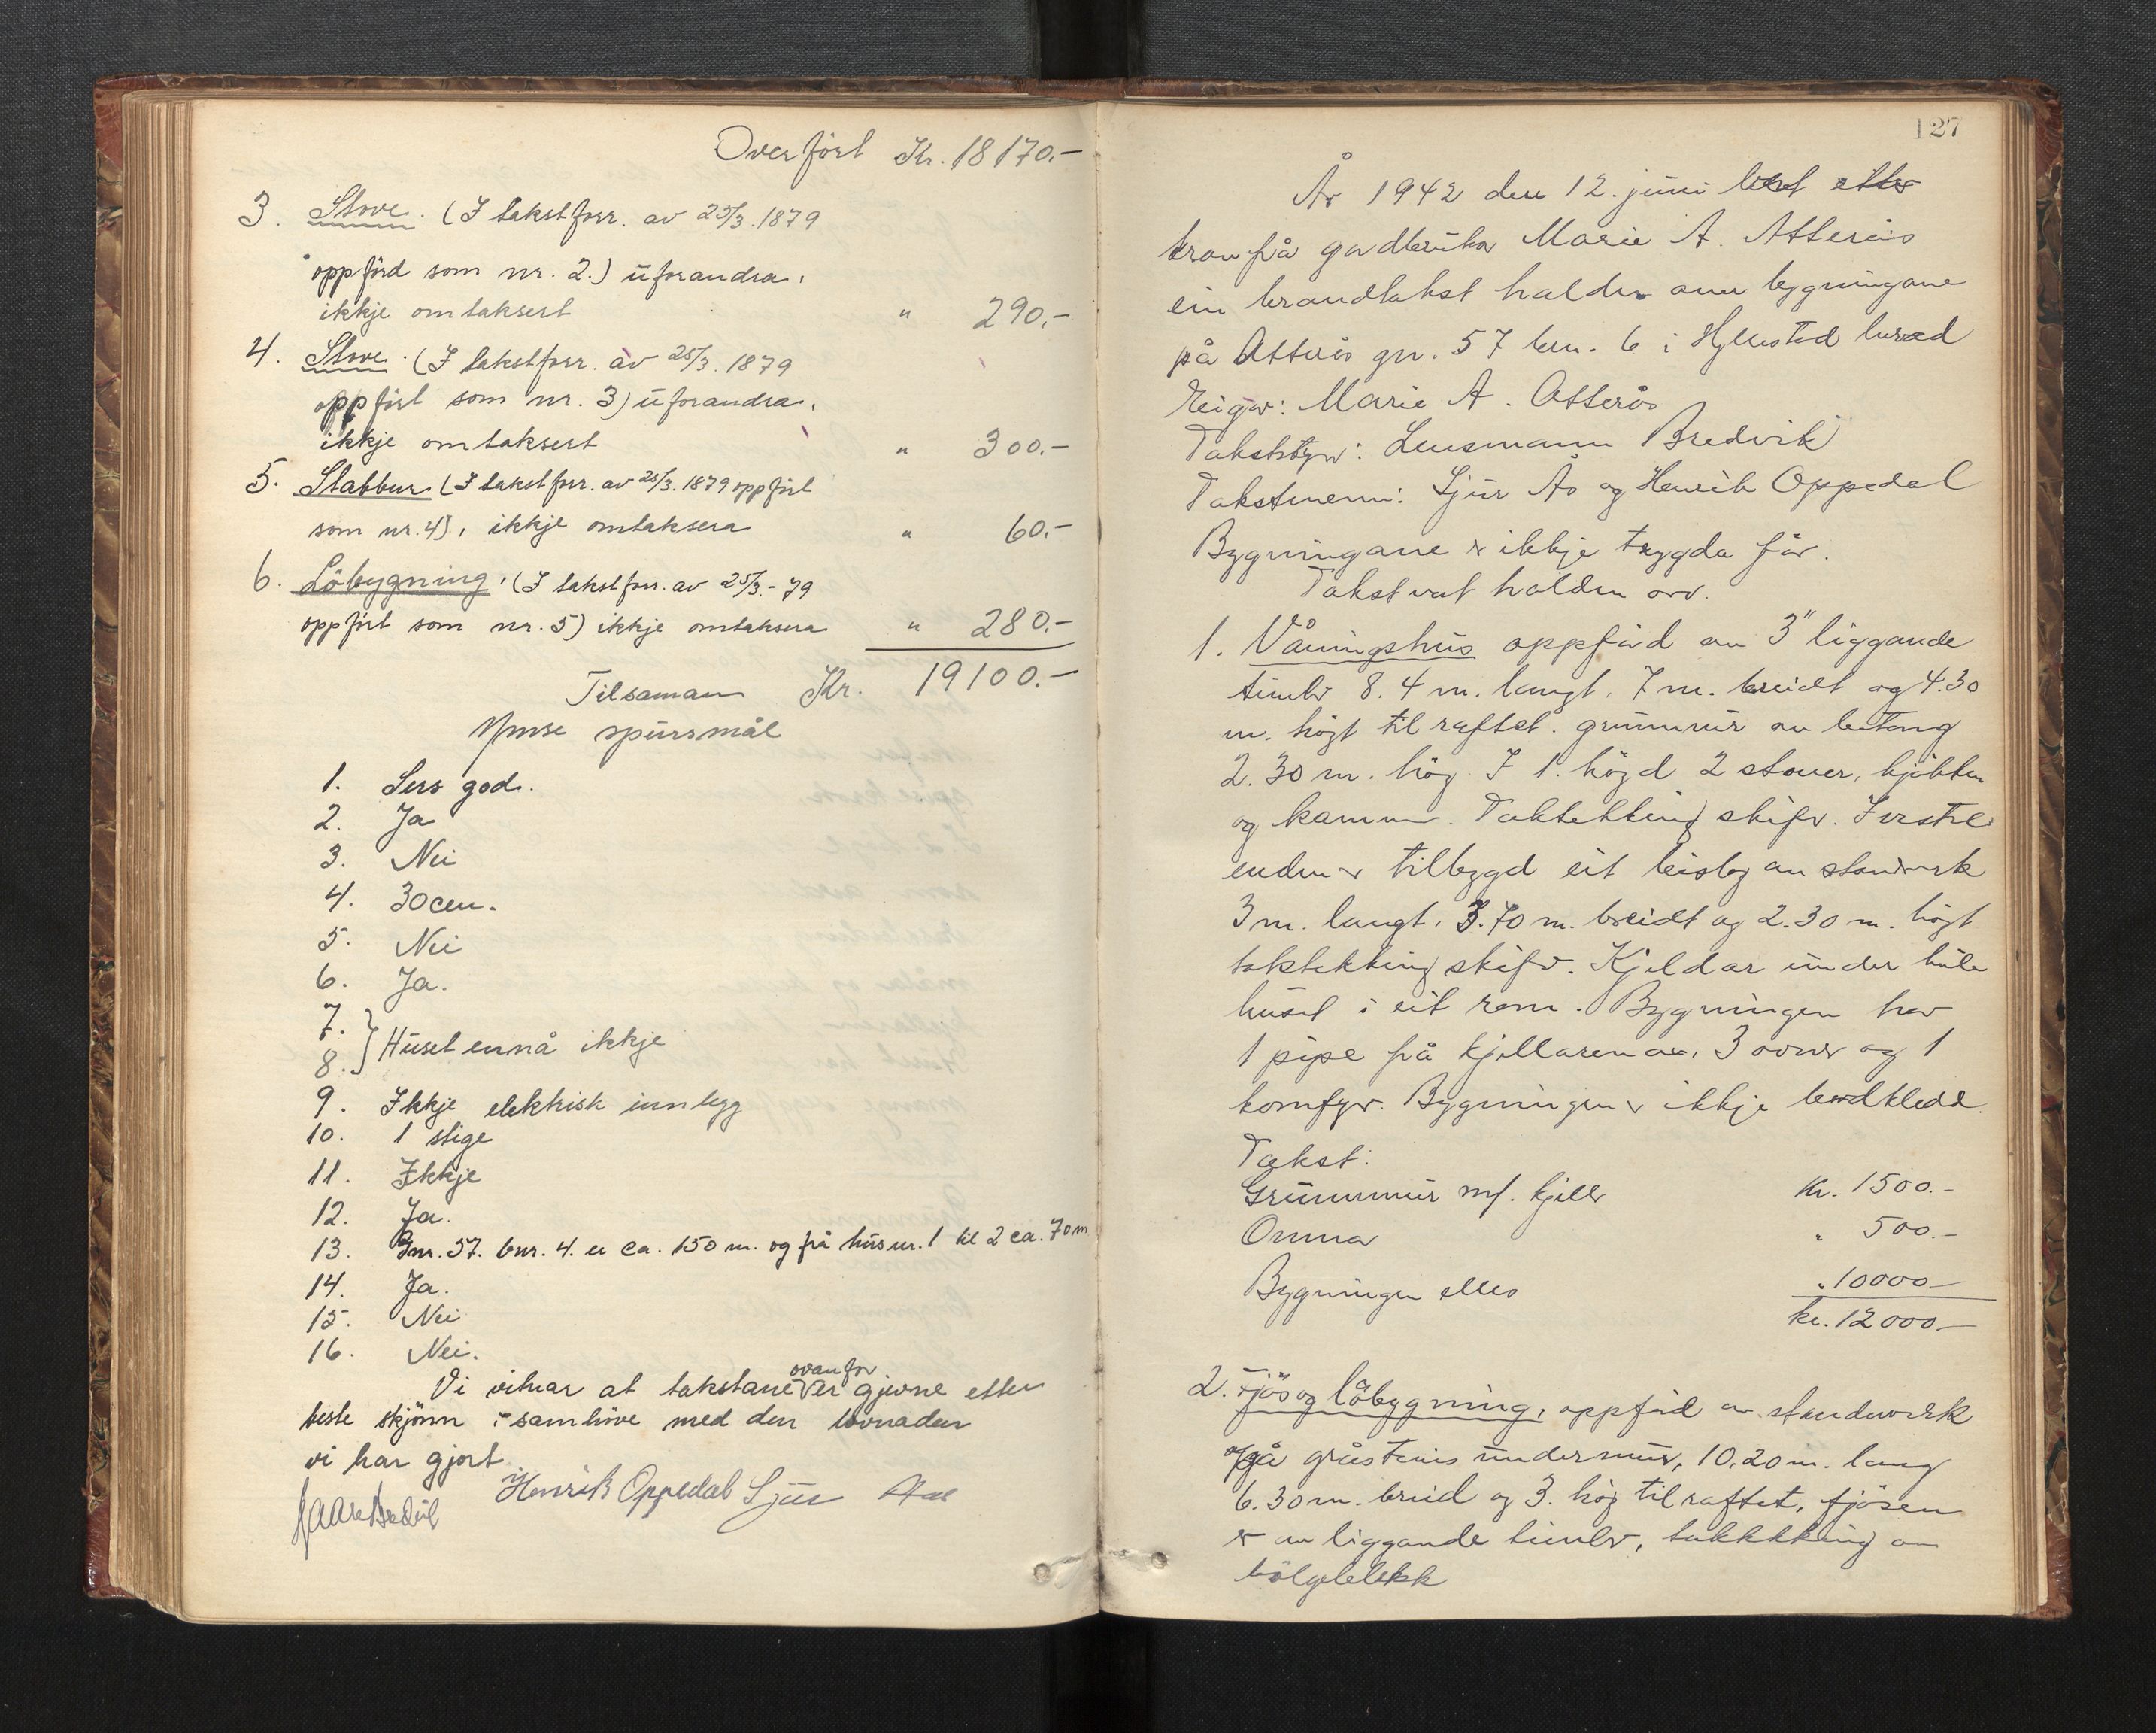 Overført Kr. 18170.-
3. Stove. (I takstforr. av 25/3.1879
oppførd som nr. 2.) uforandra,
ikkje omtaksert " 290.-
4. Stove. (I takstforr. av 25/3. 1879
oppført som nr. 3) uforandra,
ikkje omtaksert " 300.-
5. Stabbur (I takstforr. av 25/3. 1879 oppført
som nr. 4), ikkje omtaksera " 60.-
6. Löbygning, (I takstforr. av 25/3.-79
oppført som nr. 5) ikkje omtaksera " 280.-
Tilsaman Kr. 19100.-
Ymse spursmål
1. Sers god.
2. Ja
3. Nei
4. 30 cm.
5. Nei
6. Ja.
7.
8. } Huset ennå ikkje
9. Ikkje elektrisk innlegg
10. 1 stige
11. Ikkje
12. Ja.
13. Gnr. 57. bnr. 4. er ca. 150 m. og frå hus nr. 1 til 2 ca. 70 m
14. Ja.
15. Nei
16. Nei.
Vi vitnar at takstane ovanfor er gjevne etter
beste skjønn i samhöve med den lovnaden
vi har gjort.
Henrik Oppedal Sjur Aas
127
År 1942 den 12. juni vart etter
krav frå gardbrukar Marie A. Atterås
ein brandtakst halden over bygningane
på Atterås gnr. 57 bnr. 6 i Hyllestad herad
Eigar: Marie A. Atterås
Takststyr: Lensmann Bredvik
Takstmenn: Sjur Ås og Henrik Oppedal
Bygningane er ikkje trygda før.
Takst vart halden ov.
1. Våningshus oppførd av 3" liggande
timbr 8.4 m. langt, 7 m. breidt og 4.30
m. høgt til raftet. grunnmur av betong
2.30 m. høg. I 1. høgd 2 stover, kjøkken
og kammer. Taktekking skifer. I vestre
enden er tilbygd eit bislag av standverk
3 m. langt, 3.70 m. breidt og 2.30 m. høgt
taktekking skifer. Kjeldar under heile
huset i eit rom. Bygningen har
1 pipe frå kjellaren av, 3 ovner og 1
komfyr. Bygningen er ikkje bordkledd.
Takst:
Grunnmur m/. kjeller Kr. 1500.-
Omna " 500.-
Bygningen elles " 10000.-
kr. 12000.-
2. Fjös og löbygning, oppførd av standverk
på gråsteins undermur, 10,20 m. lang
6.30 m. breid og 3. høg til raftet, fjösen
er av liggande timbr, taktekking av
bölgeblekk